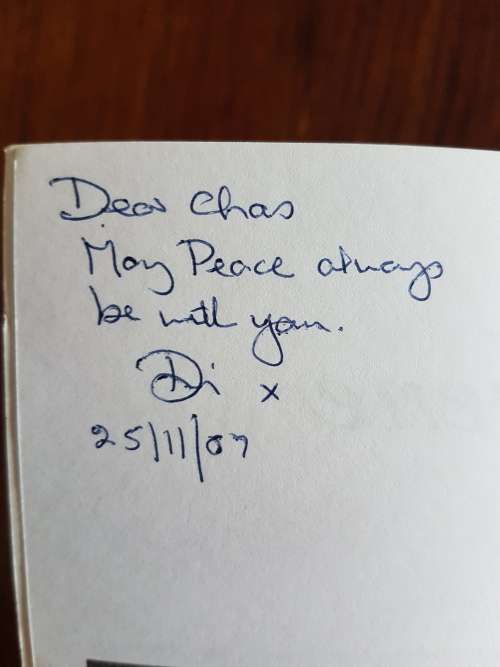 Dear Chas
May Peace always
be with you.
Di x
25/11/07